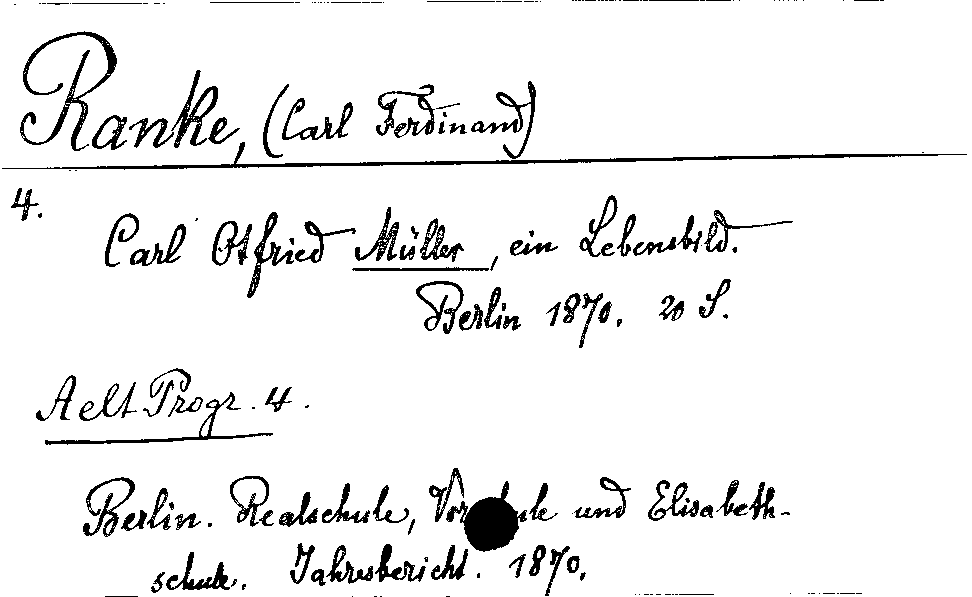 Ranke, (Carl Ferdinand)
4.
Carl Otfried Müller, ein Lebensbild.
Berlin 1870. 20 S.
Aelt. Progr. 4.
Berlin. Realschule, und Elisabeth-
schule. Jahresbericht. 1870.